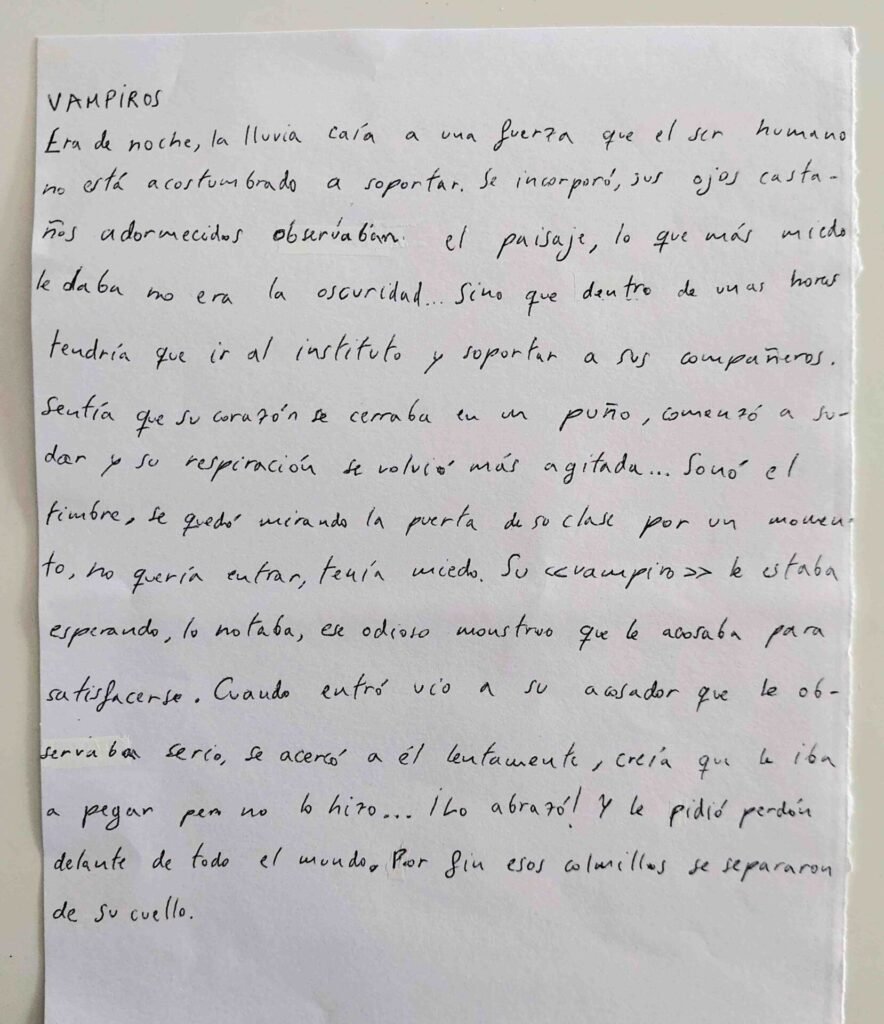 VAMPIROS
Era de noche, la lluvia caía a una fuerza que el ser humano
no está acostumbrado a soportar. Se incorporó, sus ojos casta-
ños adormecidos observaban el paisaje, lo que más miedo
le daba no era la oscuridad... Sino que dentro de unas horas
tendría que ir al instituto y soportar a sus compañeros.
Sentía que su corazón se cerraba en un puño, comenzó a su-
dar y su respiración se volvió más agitada... Sonó el
timbre, se quedó mirando la puerta de su clase por un momen-
to, no quería entrar, tenía miedo. Su <<vampiro>> le estaba
esperando, lo notaba, ese odioso monstruo que le acosaba para
satisfacerse. Cuando entró vio a su acosador que le ob-
servaba serio, se acercó a él lentamente, creía que le iba
a pegar pero no lo hizo... ¡Lo abrazó! Y le pidió perdón
delante de todo el mundo. Por fin esos colmillos se separaron
de su cuello.